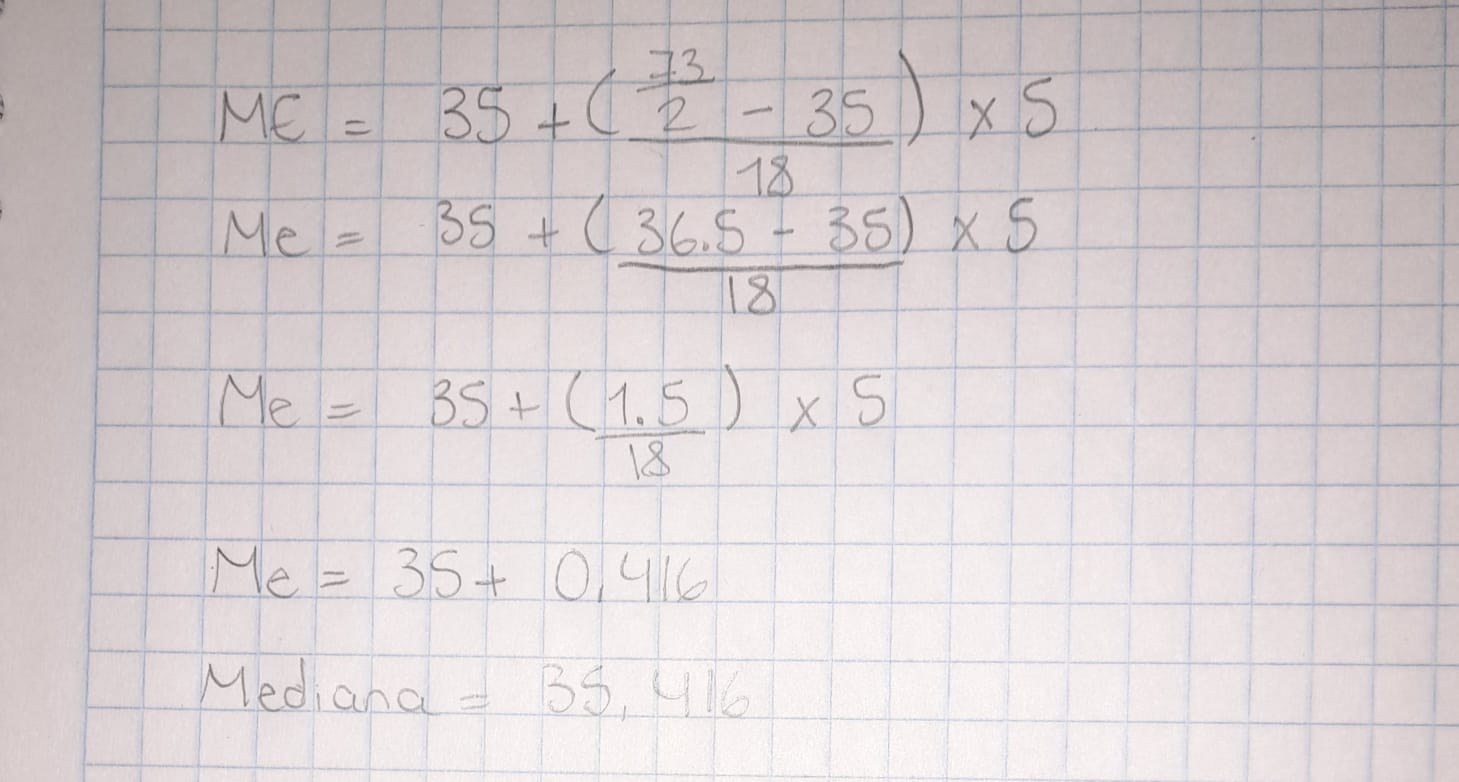 ME = 35 + ( 73/2 - 35 / 18 ) x 5
Me = 35 + ( 36.5 - 35 / 18 ) x 5
Me = 35 + ( 1.5 / 18 ) x 5
Me = 35 + 0,416
Mediana = 35,416